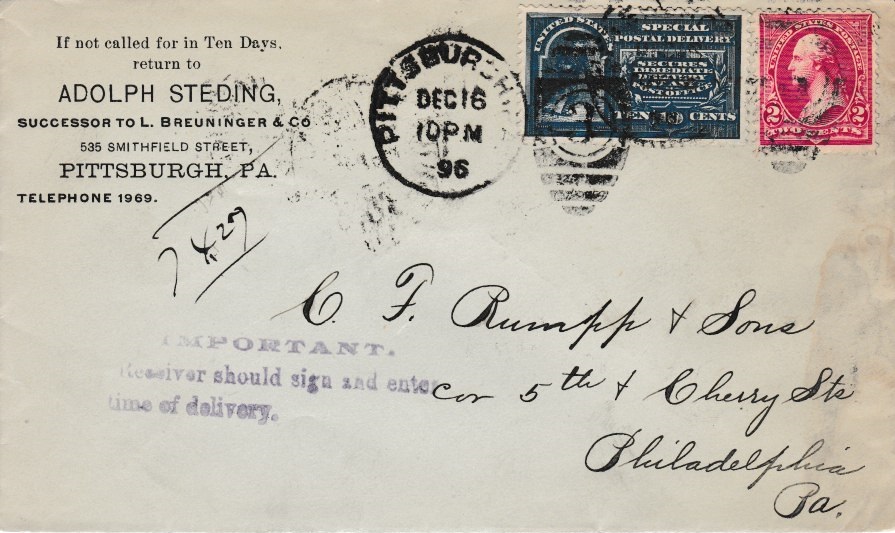 If not called for in Ten Days,
return to
ADOLPH STEDING,
SUCCESSOR TO L. BREUNINGER & CO
535 SMITHFIELD STREET,
PITTSBURGH, PA.
TELEPHONE 1969.
PITTSBURGH
DEC 16
10 PM
96
UNITED STATES
SPECIAL
POSTAL DELIVERY
SECURES
IMMEDIATE
DELIVERY
POST OFFICE
TEN CENTS
UNITED STATES POSTAGE
2 2
TWO CENTS
7427
C. F. Rumpp & Sons
cor 5th & Cherry Sts
Philadelphia
Pa.
IMPORTANT.
Receiver should sign and enter
time of delivery.